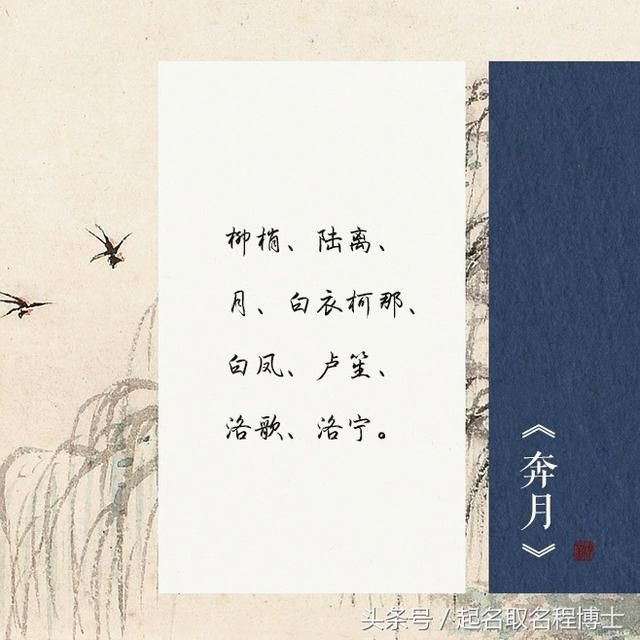 柳梢、陆离、
月、白衣柯那、
白凤、卢笙、
洛歌、洛宁。
《奔月》
头条号/起名取名程博士